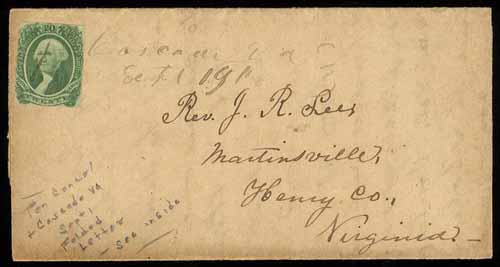 TWENTY
Cascade Va
Sept 19
Rev. J. R. Lee,
Martinsville,
Henry Co.,
Virginia.
Pen Cancel
+ Cascade Va
Sept,
Folded
Letter
- See inside